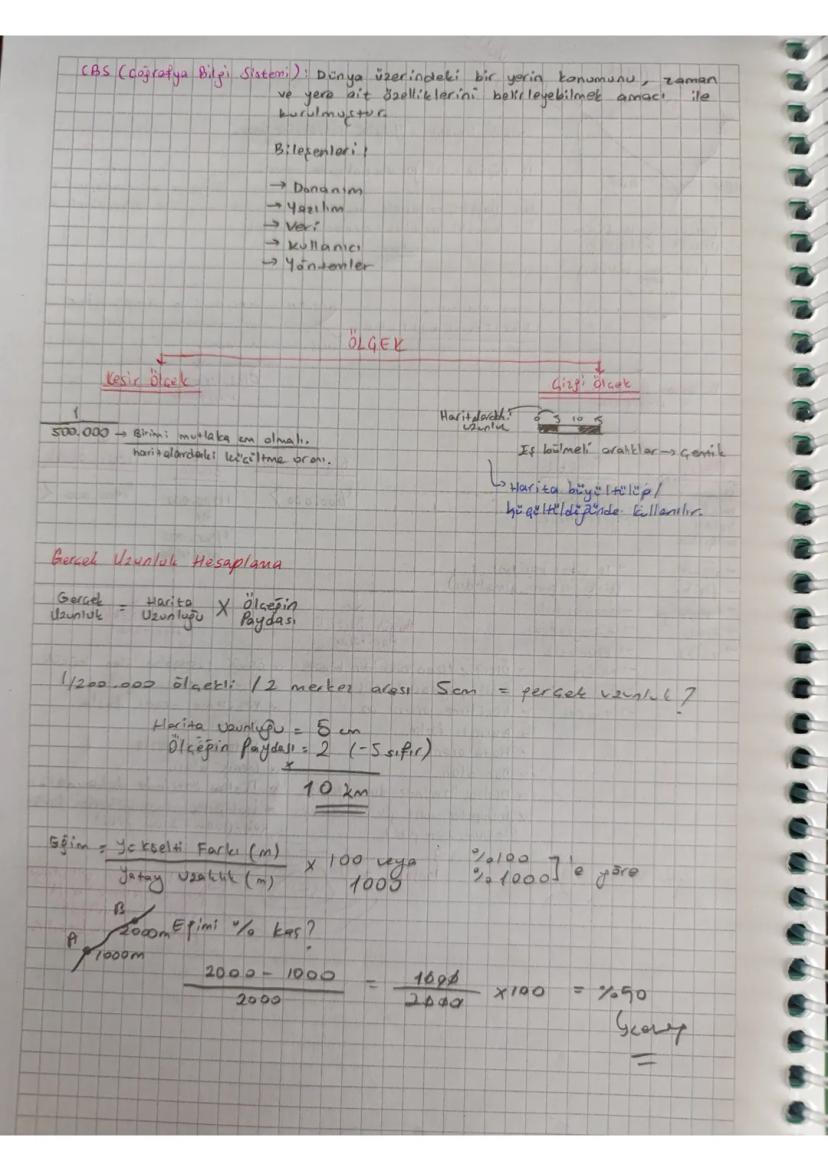 CBS (Coğrafya Bilgi Sistemi): Dünya üzerindeki bir yerin konumunu, zaman
ve yere ait özelliklerini belirleyebilmek amacı ile
kurulmuştur.
Bileşenleri:
→ Donanım
→ Yazılım
→ Veri
→ Kullanıcı
→ Yöntemler
ÖLÇEK
Kesir Ölçek
Çizgi Ölçek
1
500.000 → Birimi mutlaka cm olmalı.
haritalardaki küçültme oranı.
Haritalardaki
uzunluk
0 5 10
Eş bölmeli aralıklar → Çentik
↳ Harita büyültülüp/
küçültüldüğünde kullanılır.
Gerçek Uzunluk Hesaplama
Gerçek Uzunluk = Harita Uzunluğu X Ölçeğin Paydası
1/200.000 ölçekli / 2 merkez arası 5cm = gerçek uzunluk?
Harita uzunluğu = 5 cm
Ölçeğin Paydası = 2 (-5 sıfır)
x
10 km
Eğim = Yükselti Farkı (m) / Yatay Uzaklık (m) x 100 veya 1000
%100
%1000 ] 'e göre
B
2000m
A
1000m
Eğimi % kaç?
2000 - 1000 / 2000 = 1000 / 2000 x100 = %50